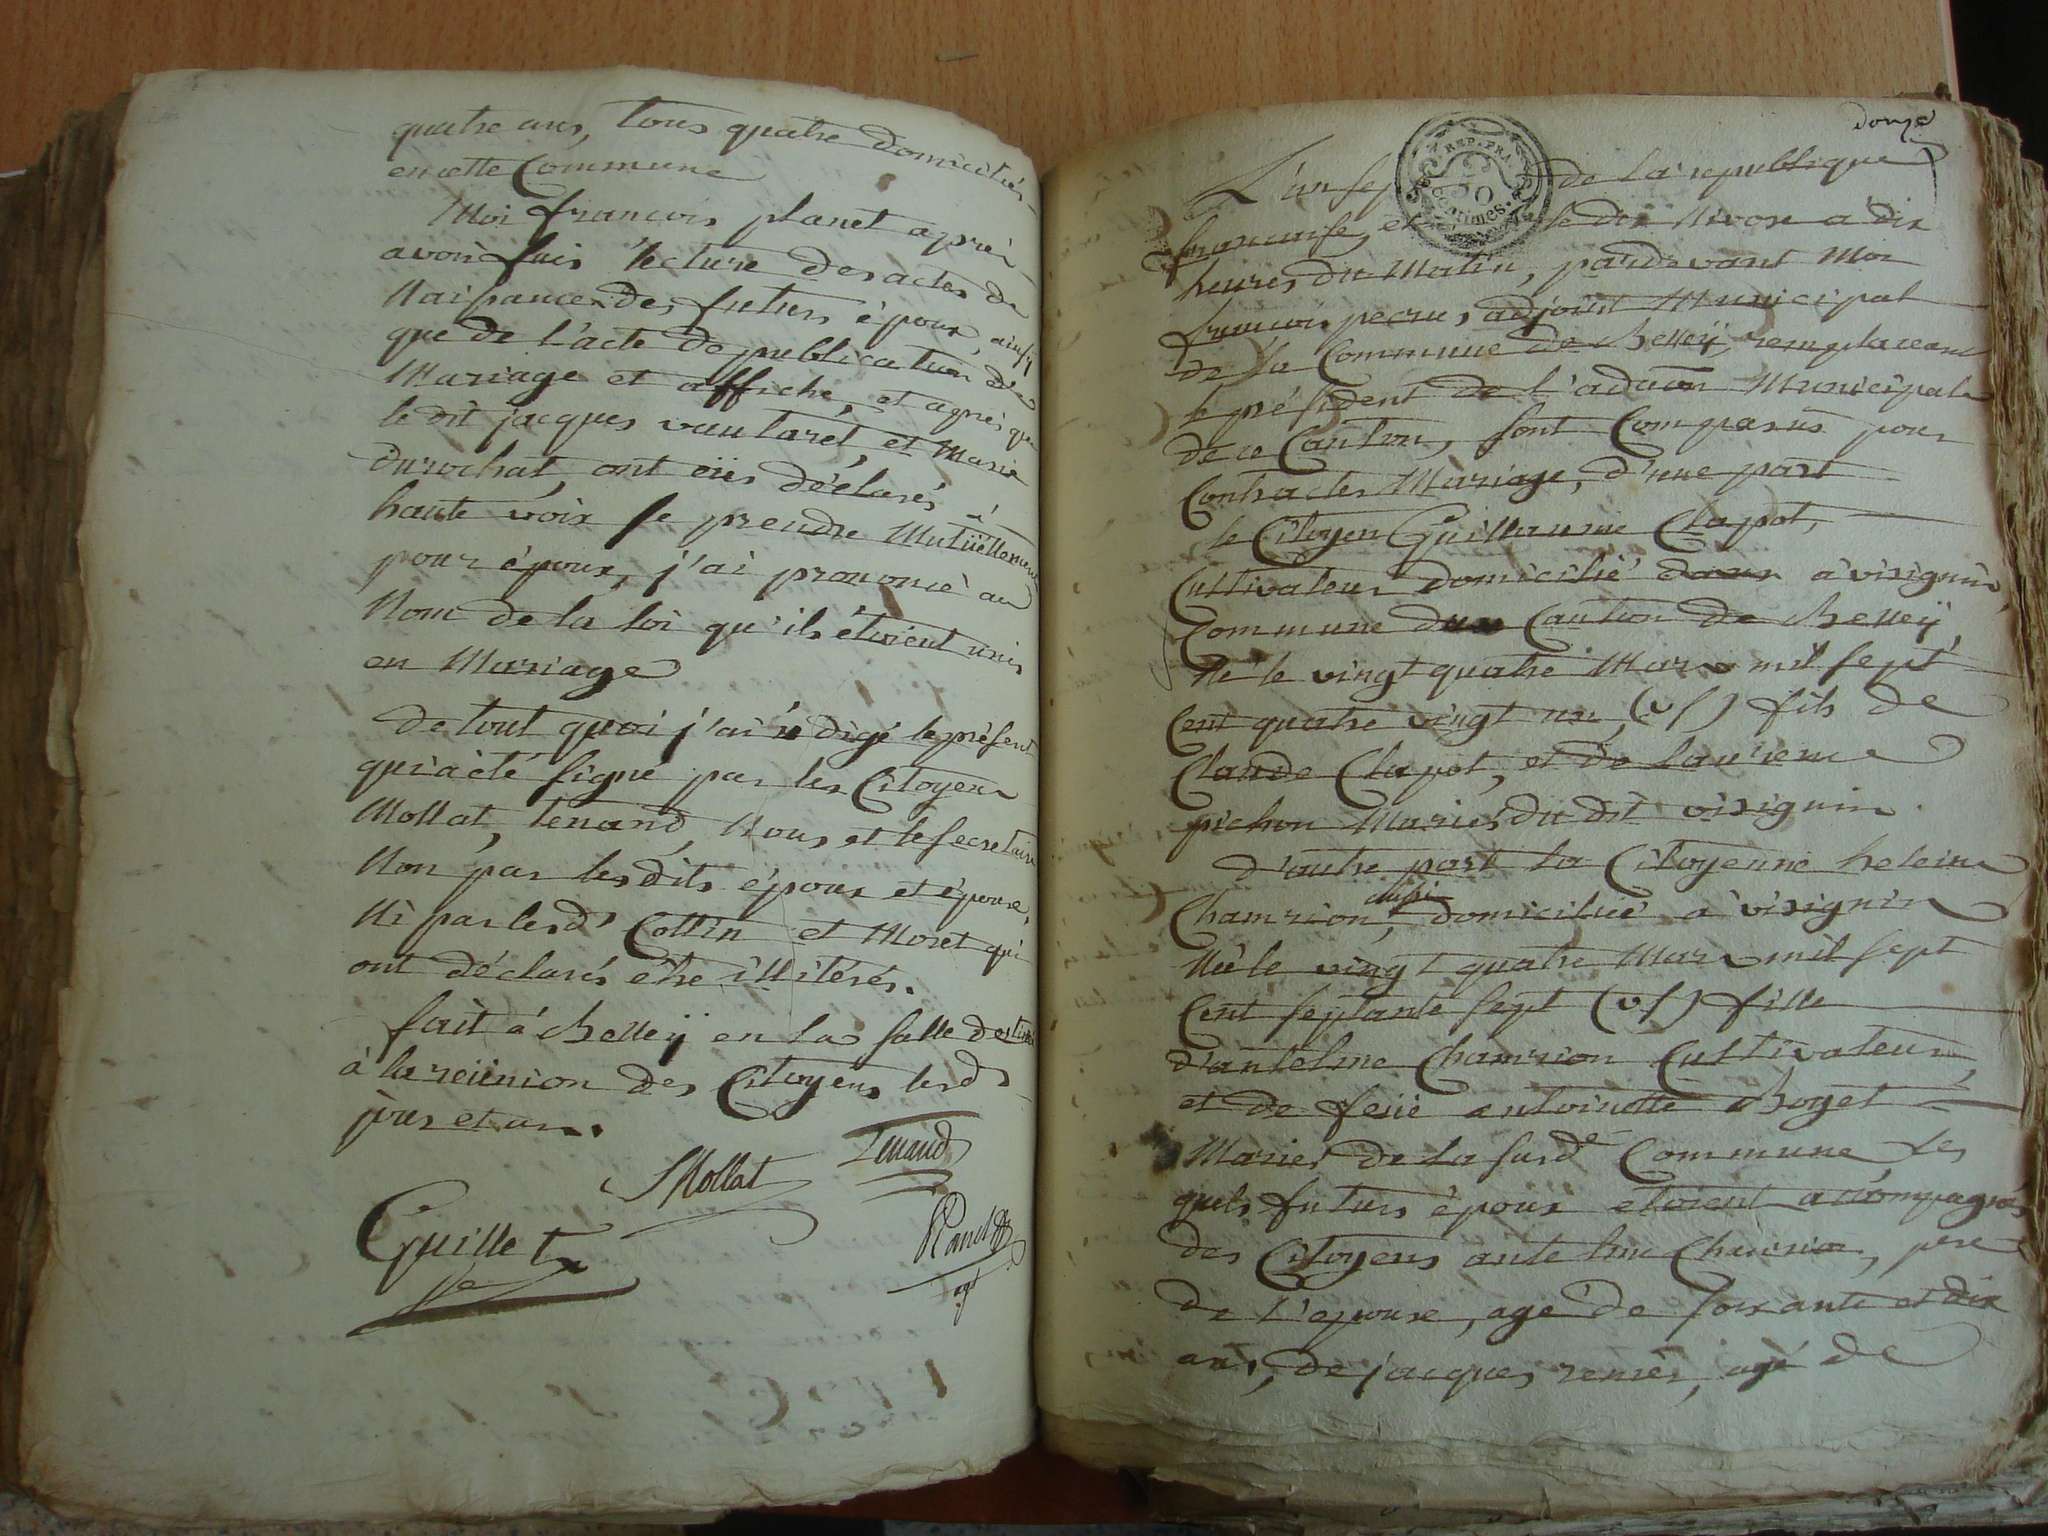 quatre ans, tous quatre domiciliés
en cette Commune
Moi francois planet après
avoir fais lecture des actes de
Naissances des futurs époux, ainsy
que de l'acte de publication de
Mariage et affiche, et après que
le dit jacques vautaret, et Marie
durochat, ont eüs déclarés à
haute voix se prendre Mutüellement
pour époux, j'ai prononcé au
Nom de la loi qu'ils étoient unis
en Mariage
De tout quoi j'ai rédigé le présent
qui a été signé par les Citoyens
Mollat, tenand, Nous et le secretaire
Non par les dits époux et épouse,
Ni par lesds Collin et Moret qui
ont déclarés etre illitérés.
fait à Belleÿ en la salle destinée
à la reünion des Citoyens lesds
jour et an.
Mollat Tenand
Guillet Planet
sre agt
douze
REP. FRA.
50
Centimes.
L'an sept de la republique
francaise, et le dix Nivose à dix
heures du Matin, pardevant Moi
francois pecrus, adjoint Municipal
de la Commune de Belleÿ, remplaceant
le président de l'adu͞on Municipale
de ce Canton, sont Comparus pour
Contracter Mariage, d'une part
le Citoyen Guillaume Clapot,
Cultivateur domicilié dans à visignin,
Commune du Canton de Belleÿ,
Né le vingt quatre Mars mil sept
Cent quatre vingt un, (vs) fils de
Claude Clapot, et de laurence
pichon Mariés du dit visignin.
D'autre part la Citoyenne heleine
Chamrion, aussi domiciliée à visignin
Née le vingt quatre Mars mil sept
Cent septante sept (vs) fille
d'antelme Chamrion Cultivateur,
et de feüe antoinette Boget
Mariés de la susde Commune, les
quels futurs époux etoient accompagnés
des Citoyens antelme Chamrion, pere
de l'epouse, agé de soixante et dix
ans, de jacques remès, agé de